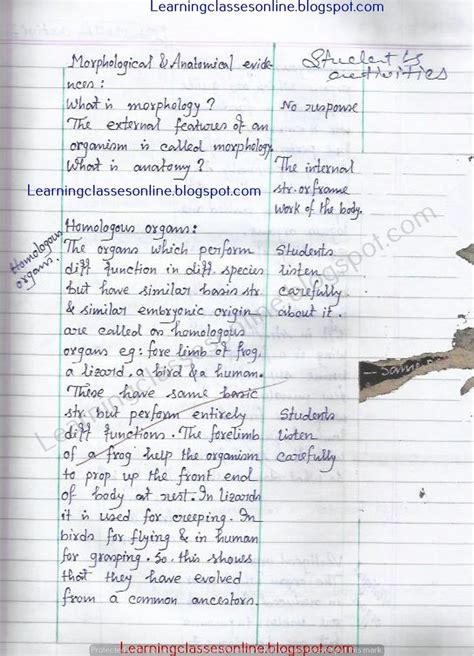 Learningclassesonline.blogspot.com
Morphological & Anatomical evide-
nces:
Student's
activities
What is morphology?
No response
The external features of an
organism is called morphology
What is anatomy?
The internal
str. or frame
work of the body.
Learningclassesonline.blogspot.com
Homologous
organs.
Homologous organs:
The organs which perform
Students
diff function in diff. species
listen
but have similar basis str
carefully
& similar embryonic origin
about it.
are called as homologous
organs eg: fore limb of frog,
a lizard, a bird & a human.
Same
These have same basic
str. but perform entirely
Students
diff functions. The forelimb
listen
of a frog help the organism
carefully
to prop up the front end
of body at rest. In lizards
it is used for creeping. In
birds for flying & in human
for grasping. So this shows
that they have evolved
from a common ancestors.
Learningclassesonline.blogspot.com
Protected
this mark.
Learningclassesonline.blogspot.com